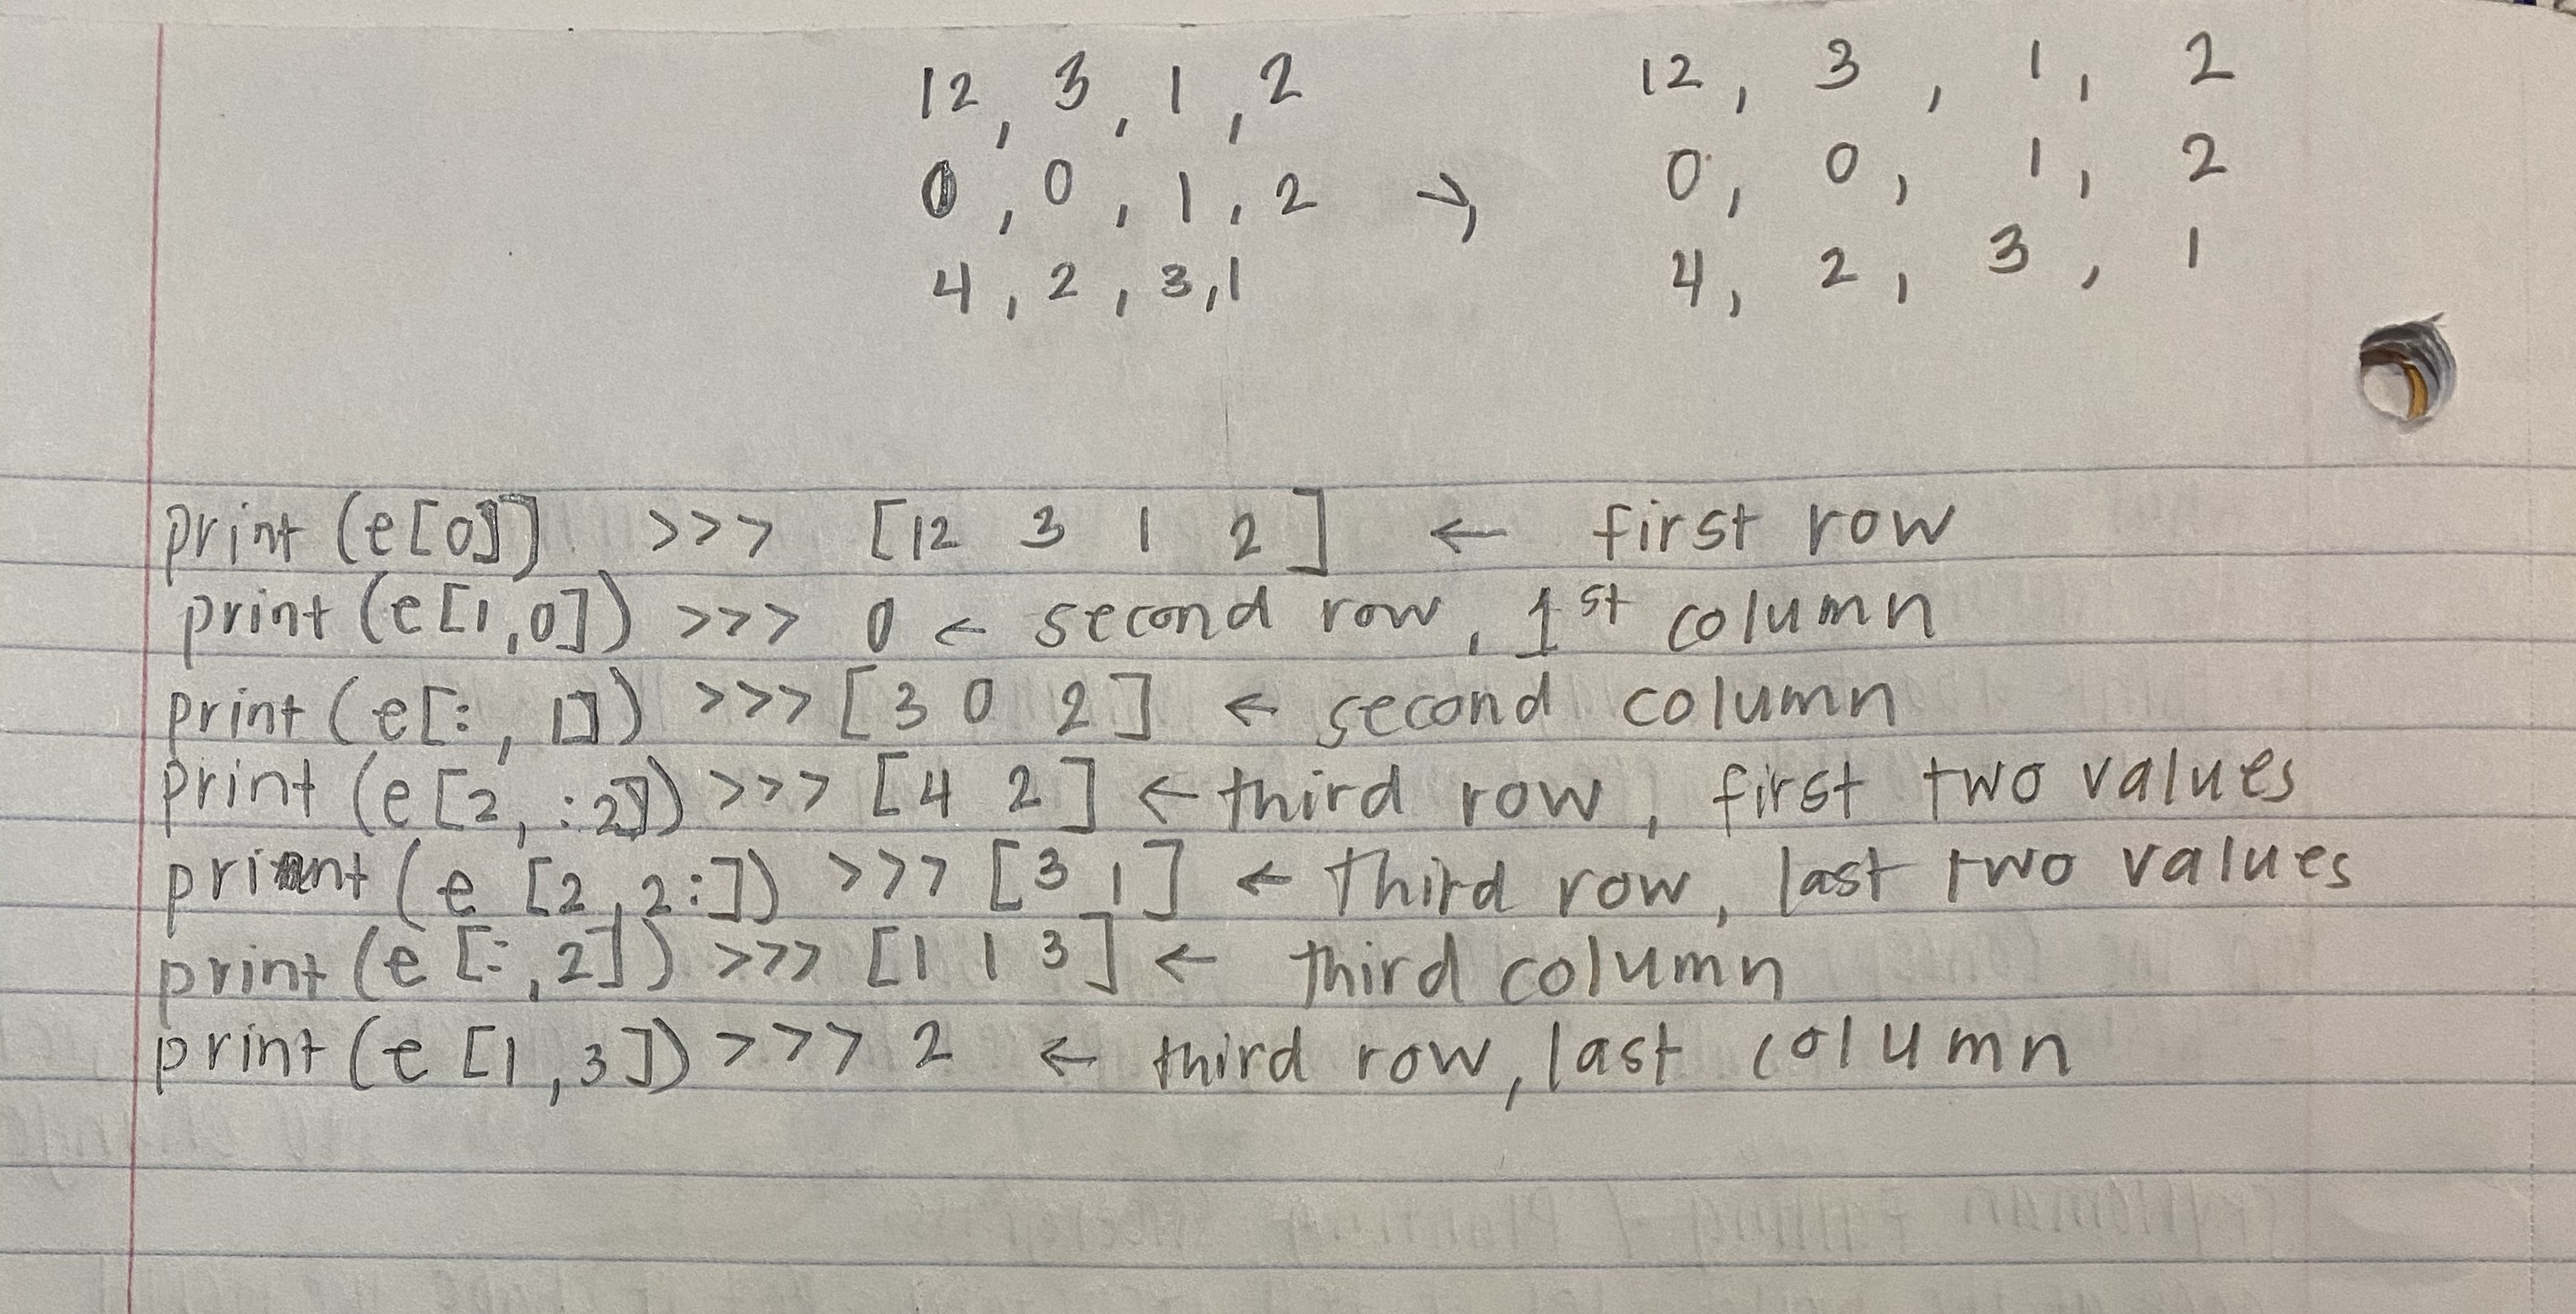 12, 3, 1, 2    12, 3, 1, 2
0, 0, 1, 2 →, 0, 0, 1, 2
4, 2, 3, 1    4, 2, 3, 1
print (e[0]) >>> [12 3 1 2] ← first row
print (e[1,0]) >>> 0 ← second row, 1st column
print (e[:, 1]) >>> [3 0 2] ← second column
print (e[2, :2]) >>> [4 2] ← third row, first two values
print (e [2, 2:]) >>> [3 1] ← third row, last two values
print (e [:,2]) >>> [1 1 3] ← third column
print (e [1,3]) >>> 2 ← third row, last column